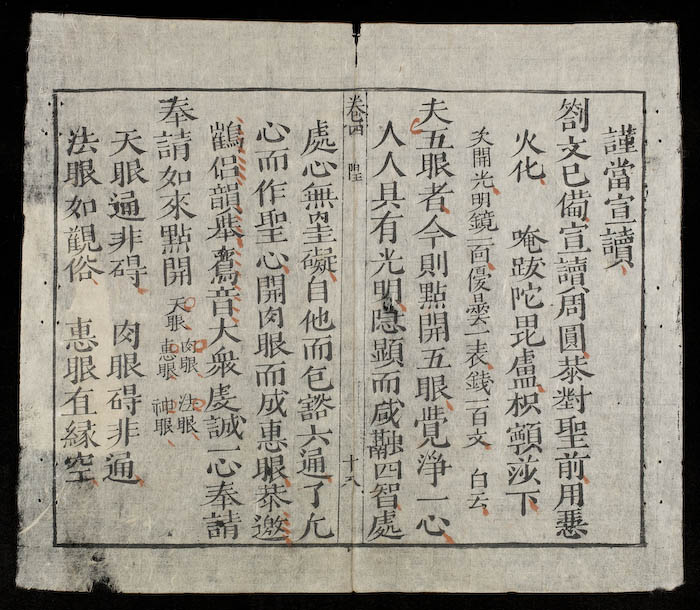 謹當宣讀
劄文已俻宣讀周圓恭對聖前用
火化 唵跋陀毘盧枳莎下
次開光明鏡一面優曇一表錢二百文 白云
夫五眼者今則點開五眼覺淨一心
人人具有光明隱顯而咸融四智處
卷四 陞 十八
處心無罣礙自他而包豁六通了凡
心而作聖心開肉眼而成惠眼恭邀
鶴侶韻舉鸞音大衆虔誠一心奉請
奉請如來點開 天眼 肉眼 法眼 惠眼 神眼
天眼通非碍 肉眼碍非通
法眼如觀俗 惠眼直緣空